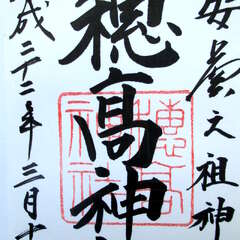 安曇之祖神
穂髙神
穂高
神社
成二十二年三月十